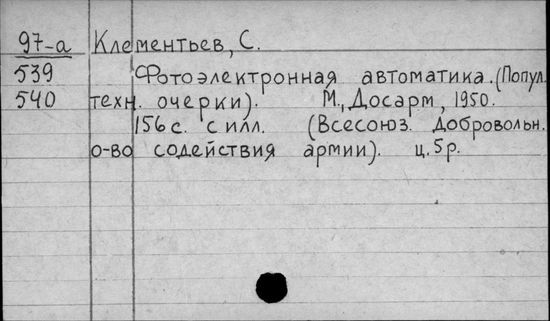 97-а Клементьев, С.
539 Фотоэлектронная автоматика. (Попул.
540 техн. очерки). М., Досарм, 1950.
156 с. с илл. (Всесоюз. Добровольн.
о-во содействия армии). ц. 5 р.